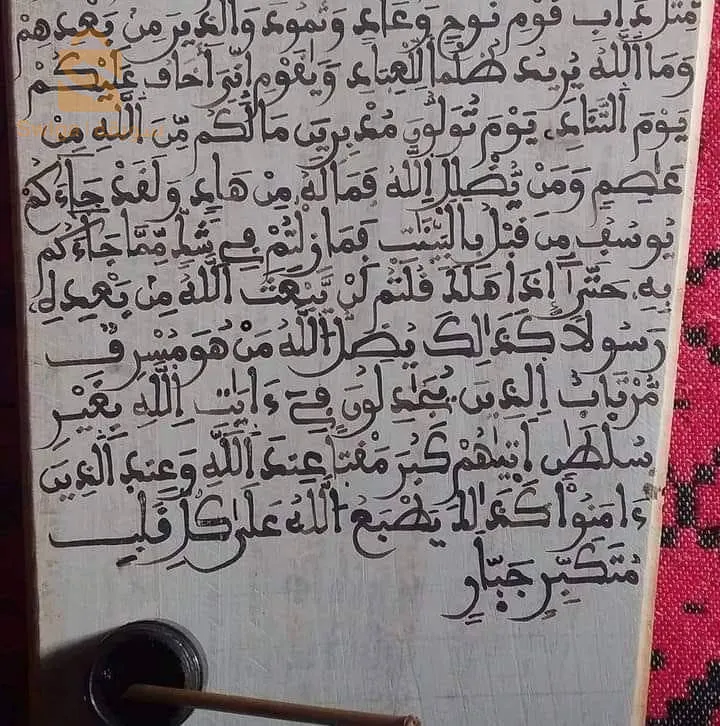 مِثْلَ دَابِ قَوْمِ نُوحٍ وَعَادٍ وَثَمُودَ وَالذِينَ مِنْ بَعْدِهِمْ
وَمَا اَللَّهُ يُرِيدُ ظُلْماً لِّلْعِبَادِ وَيَٰقَوْمِ إِنِّيَ أَخَافُ عَلَيْكُمْ
يَوْمَ اَلتَّنَادِ يَوْمَ تُوَلُّونَ مُدْبِرِينَ مَا لَكُم مِّنَ اَللَّهِ مِنْ
عَاصِمٍ وَمَنْ يُّضْلِلِ اِللَّهُ فَمَا لَهُ مِنْ هَادٍ وَلَقَدْ جَاءَكُمْ
يُوسُفُ مِن قَبْلُ بِالْبَيِّنَٰتِ فَمَا زِلْتُمْ فِي شَكٍّ مِّمَّا جَاءَكُم
بِهِ حَتَّىٰ إِذَا هَلَكَ قُلْتُمْ لَنْ يَّبْعَثَ اَللَّهُ مِنْ بَعْدِهِ
رَسُولاً كَذَٰلِكَ يُضِلُّ اُللَّهُ مَنْ هُوَ مُسْرِفٌ
مُّرْتَابٌ اِلذِينَ يُجَٰدِلُونَ فِي ءَايَٰتِ اِللَّهِ بِغَيْرِ
سُلْطَٰنٍ اَتَيٰهُمْ كَبُرَ مَقْتاً عِندَ اَللَّهِ وَعِندَ اَلذِينَ
ءَامَنُواْ كَذَٰلِكَ يَطْبَعُ اُللَّهُ عَلَىٰ كُلِّ قَلْبِ
مُتَكَبِّرٍ جَبّارٍ